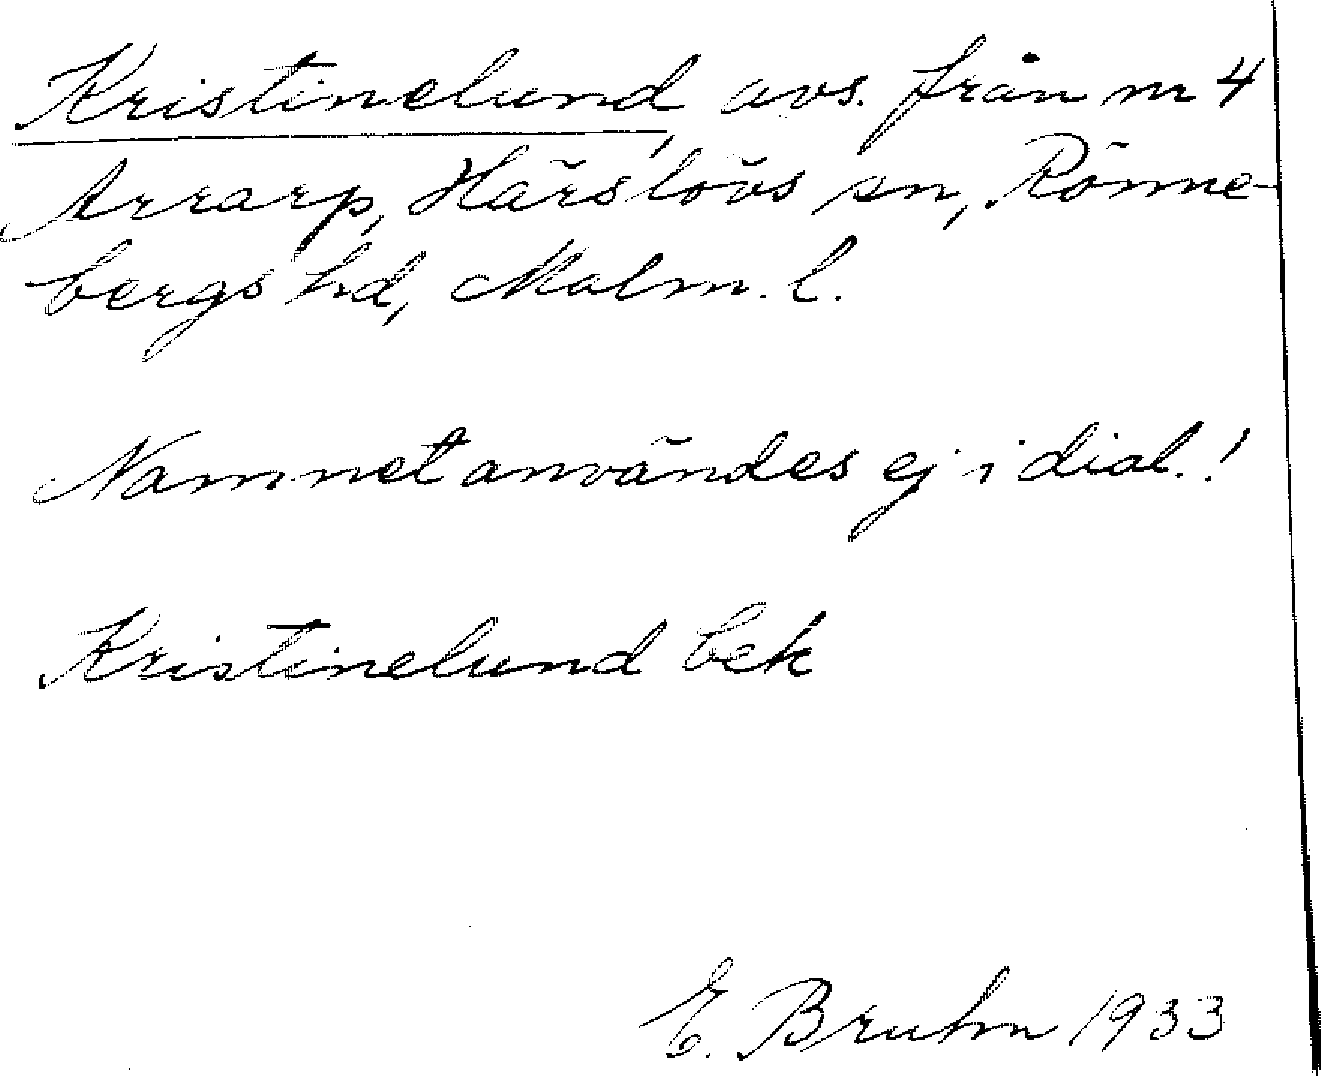 Kristinelund, avs. från nr 4
Arrarp, Härslövs sn, Rönne-
bergs hd, Malm. l.
Namnet användes ej i dial.!
Kristinelund bek
E. Bruhn 1933